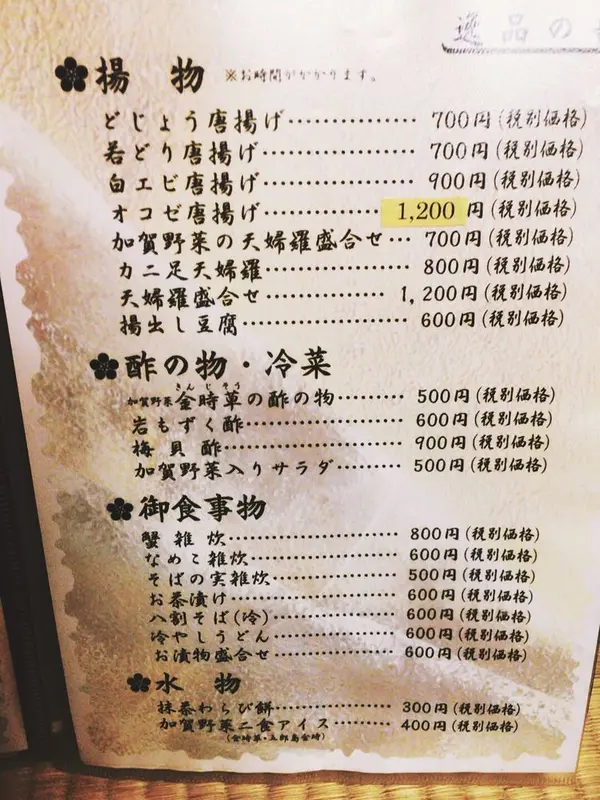 逸品の
揚物 ※お時間がかかります。
どじょう唐揚げ……………… 700円(税別価格)
若どり唐揚げ……………… 700円(税別価格)
白エビ唐揚げ……………… 900円(税別価格)
オコゼ唐揚げ…………… 1,200円(税別価格)
加賀野菜の天婦羅盛合せ… 700円(税別価格)
カニ足天婦羅……………… 800円(税別価格)
天婦羅盛合せ…………… 1,200円(税別価格)
揚出し豆腐………………… 600円(税別価格)
酢の物・冷菜
きんじそう
加賀野菜 金時草の酢の物……… 500円(税別価格)
岩もずく酢………………… 600円(税別価格)
梅貝酢…………………… 900円(税別価格)
加賀野菜入りサラダ……… 500円(税別価格)
御食事物
蟹雑炊…………………… 800円(税別価格)
なめこ雑炊………………… 600円(税別価格)
そばの実雑炊……………… 500円(税別価格)
お茶漬け…………………… 600円(税別価格)
八割そば(冷)……………… 600円(税別価格)
冷やしうどん……………… 600円(税別価格)
お漬物盛合せ……………… 600円(税別価格)
水物
抹茶わらび餅……………… 300円(税別価格)
加賀野菜二食アイス……… 400円(税別価格)
(金時草・五郎島金時)